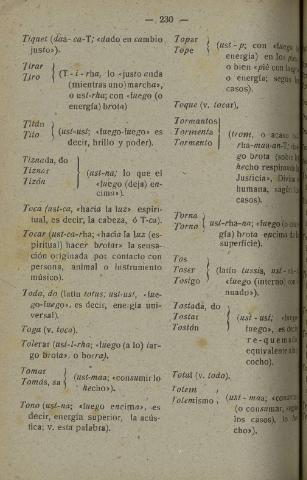 — 230 —
Tiquet (daa-ca-T; «dado en cambio
justo»).
Tirar
Tiro
(T-i-rha, lo «justo anda
(mientras uno) marcha»,
o ust-rha; con «luego (o
energía) brota)
Titán
Tito
(ust-ust; «luego-luego» es
decir, brillo y poder).
Tiznada, do
Tiznar
Tizón
(ust-na; lo que el
«luego (deja) en-
cima»).
Toca (ust-ca, «hacia la luz» espiri-
tual, es decir, la cabeza, ó T-ca).
Tocar (ust-ca-rha; «hacia la luz (es-
piritual) hacer brotar» la sensa-
ción originada por contacto con
persona, animal o instrumento
músico).
Toda, do (latín totus; ust-ust, «lue-
go-luego», es decir, energía uni-
versal).
Toga (v. toca).
Tolerar (ust-l-rha; «luego (a lo) lar-
go brota», o borra).
Tomar
Tomás, sa
(ust-maa; «consumir lo
hecho»).
Tono (ust-na; «luego encima», es
decir, energía superior, la acús-
tica; v. esta palabra).
Topar
Tope
(ust-p; con «luego
energía) en los pie
o bien «pié con lueg
o energía; según
casos).
Toque (v. tocar),
Tormantos
Tormenta
Tormento
(trom, o acaso
rha-mau-an-T;
go brota (sobre
hecho respirando
Justicia», Divina
humana, según
casos).
Torna
Torno
ust-rha-na; «luego (o
gía) brota encima
superficie).
Tos
Toser
Tosigo
(latín tussis, ust-
«luego (interno)
nuado»).
Tostada, do
Tostar
Tostón
(ust-ust; «luego
luego», es decir
re-quemado
equivalente
cocho).
Total (v. todo).
Totem
Totemismo
(ust-maa; «consumar
(o consumar, según
los casos), lo
cho»).